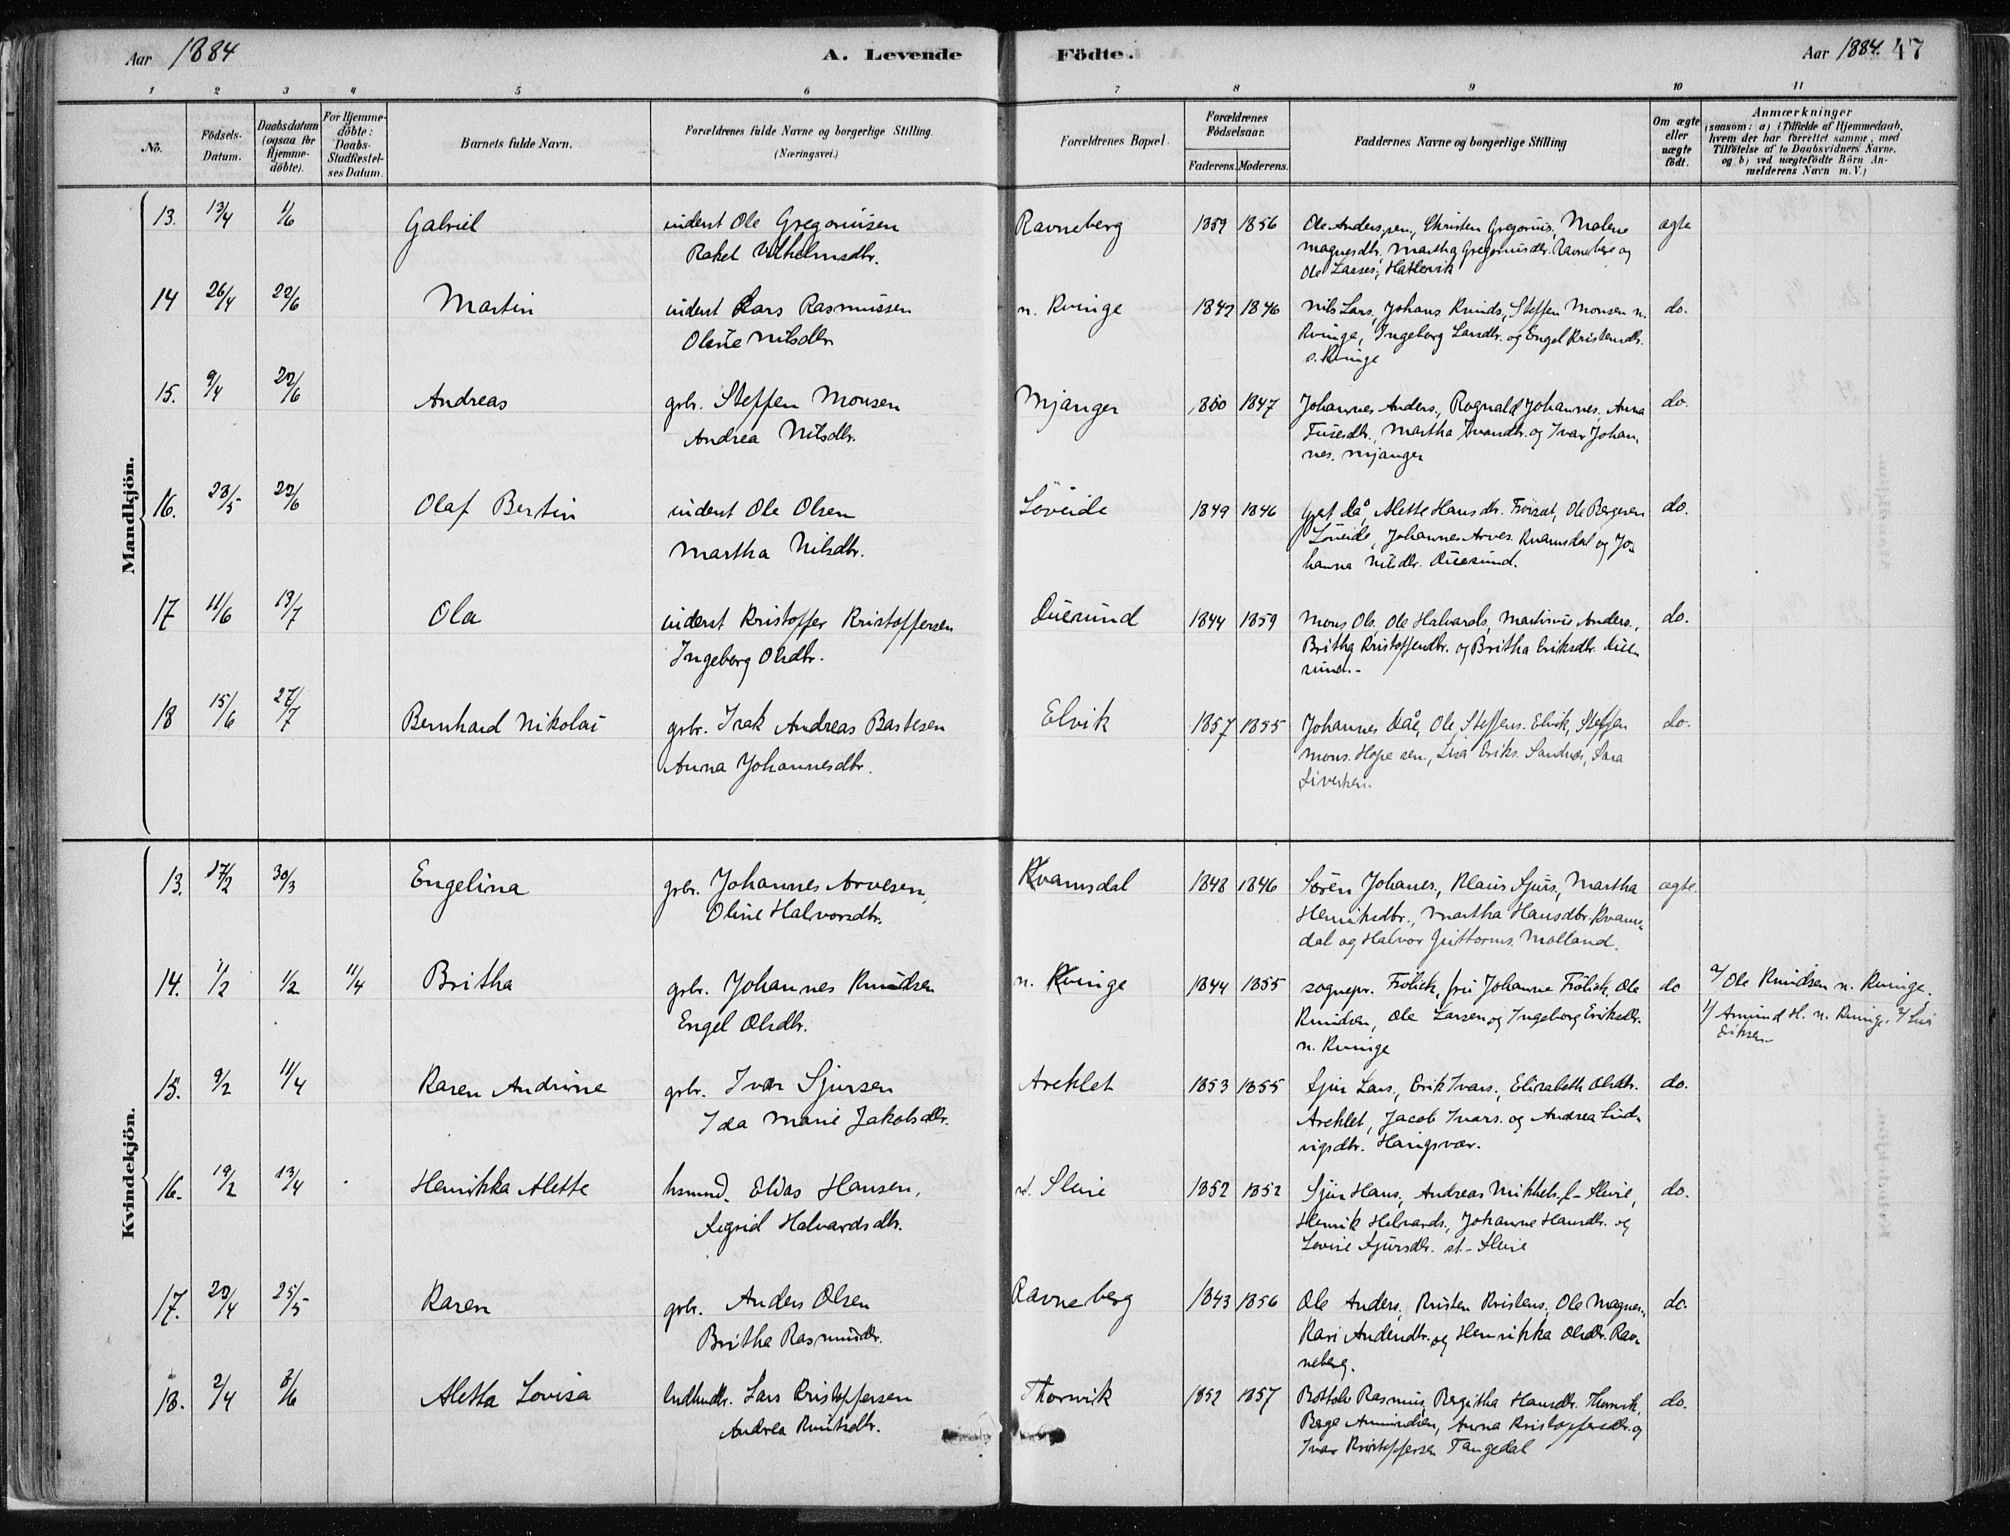 Aar 1884
A. Levende
Födte.
Aar 1884. 47
1 2 3 4 5 6 7 8 9 10 11
No.
Födsels-Datum.
Daabsdatum (ogsaa for Hjemmedöbte).
For Hjemmedöbte: Daabs-Stadfæstelses Datum.
Barnets fulde Navn.
Forældrenes fulde Navne og borgerlige Stilling. (Næringsvei.)
Forældrenes Bopæl.
Forældrenes Födselsaar.
Faderens. Moderens.
Faddernes Navne og borgerlige Stilling
Om ægte eller uægte födt.
Anmærkninger
(saasom: a) i Tilfælde af Hjemmedaab, hvem der har forrettet samme, med Tilföielse af to Daabsvidners Navne. og b) ved uægtefödte Börn Anmelderens Navn m.V.)
Mandkjön.
13. 13/4 1/6 Gabriel inderst Ole Gregoriusen Ravneberg 1859 1856 Ole Andersen, Christen Gregorius, Malene ægte
Rakel Vilhelmsdtr. Magnesdtr., Martha Gregoriusdtr. Ravneberg og
Ole Lasses, Hatlevik
14 26/4 22/6 Martin inderst Lars Rasmussen n. Kvinge 1842 1846 Nils Lars., Johans Knuds., Steffen Monsen n. do.
Oline Nilsdtr. Kvinge, Ingeborg Larsdtr. og Engel Kristensdtr.
s. Kvinge
15. 9/4 22/6 Andreas gbr. Steffen Monsen Mjanger 1860 1847 Johannes Anders., Rognald Johannes., Anna do.
Andrea Nilsdtr. Martha Ivarsdtr. og Ivar Johan-
nes. Mjanger
16. 23/5 22/6 Olaf Bertin inderst Ole Olsen Løveide 1849 1846 Alette Hansdtr. Ole Bergesen do.
Martha Nilsdtr. Løveide, Johannes Arves. Kvamsdal og Jo-
hanna Nilsdtr. Duesund.
17 11/6 13/7 Ola inderst Kristoffer Kristoffersen Duesund 1844 1859 Mons Ols., Ole Halvards., Martinus Anders., do.
Ingeborg Olsdtr. Britha Kristoffersdtr. og Britha Eriksdtr. Due-
sund.
18 15/6 27/7 Bernhard Nikolai gbr. Isak Andreas Bastesen Elvik 1857 1855 Johannes Då, Ole Steffens. Elvik, Steffen do.
Anna Johannesdtr. Mons. Hope Lisa Eriks. Sandnes, Sara
Siversen.
Kvindekjön.
13. 17/2 30/3 Engelina gbr. Johannes Arvesen, Kvamsdal 1848 1846 Sören Johanes., Klaus Sjurs., Martha ægte.
Oline Halvorsdtr. Henriksdtr., Martha Hansdtr. Kvams-
dal og Halvor Guttorms. Molland.
14. 1/2 1/2 11/4 Britha gbr. Johannes Knudsen n. Kvinge 1844 1855 sognepr. Frölich, fru Johanne Frölich, Ole do a/ Ole Knudsen n. Kvinge.
Engel Olsdtr. Knudsen, Ole Larsen og Ingeborg Eriksdtr. 1/ Amund H. n. Kvinge, 2/ Lisa
n. Kvinge Eriksen
15. 9/2 11/4 Karen Andrine gbr. Ivar Sjursen Areklet 1853 1855 Sjur Lars., Erik Ivars., Elisabeth Olsdtr. do.
Ida Marie Jakobsdtr. Areklet, Jacob Ivars. og Andrea Lud-
vigsdtr. Haugsvær.
16. 19/2 13/4 Henrikka Alette husmd. Elias Hansen, st. Sleire 1852 1852 Sjur Hans., Andreas Mikkels. l-Sleire, do.
Sigrid Halvardsdtr. Henrik Halvards., Johanne Hansdtr. og
Lovise Sjursdtr. st-Sleire
17. 20/4 25/5 Karen gbr. Anders Olsen Ravneberg 1843 1856 Ole Anders., Kristen Kristens., Ole Magnes., do.
Britha Rasmusdtr. Kari Andersdtr. og Henrikka Olsdtr. Rav-
neberg.
18. 2/4 8/6 Aletta Lovisa Lars Kristoffersen Thorvik 1852 1857 Bottolv Rasmus., Bergitha Hansdtr. Thorvik, do.
Andrea Knutsdtr. Berge Amundsen, Anna Kristoffersdtr. og
Ivar Kristoffersen Tangedal